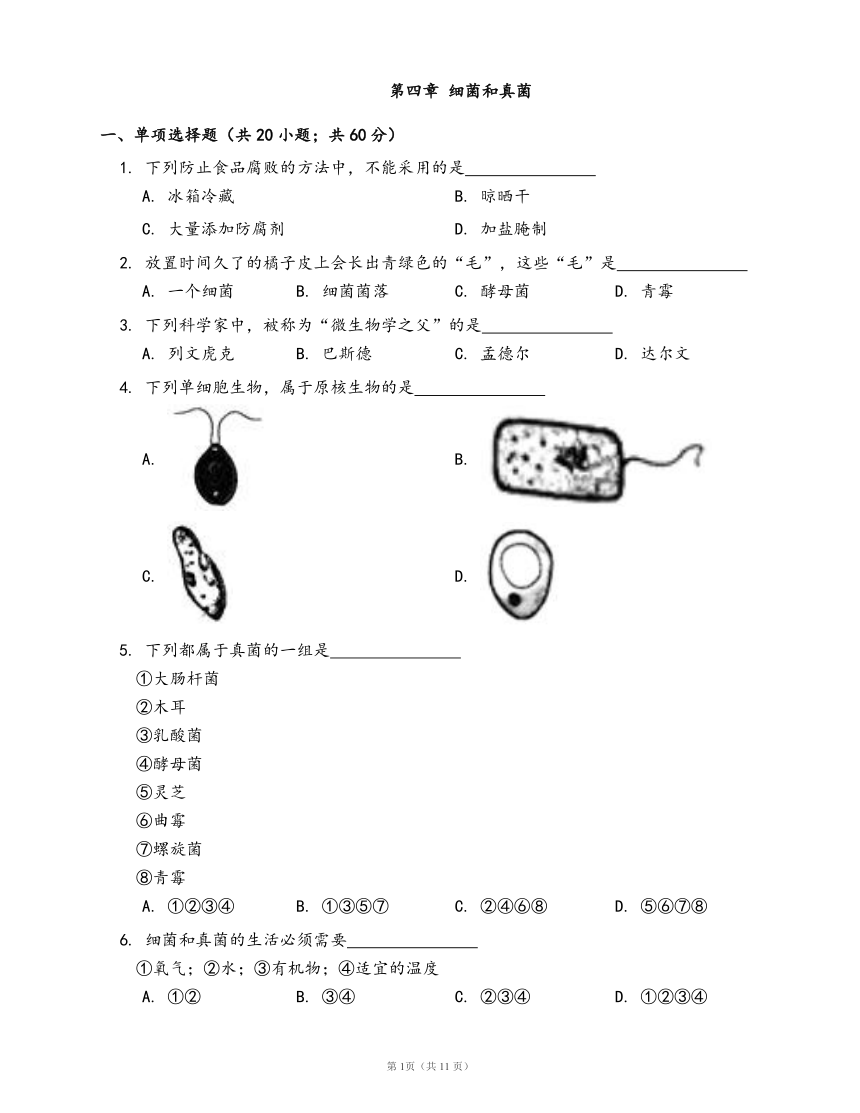 第四章 细菌和真菌
一、单项选择题（共 20 小题；共 60 分）
1. 下列防止食品腐败的方法中，不能采用的是
A. 冰箱冷藏 B. 晾晒干
C. 大量添加防腐剂 D. 加盐腌制
2. 放置时间久了的橘子皮上会长出青绿色的“毛”，这些“毛”是
A. 一个细菌 B. 细菌菌落 C. 酵母菌 D. 青霉
3. 下列科学家中，被称为“微生物学之父”的是
A. 列文虎克 B. 巴斯德 C. 孟德尔 D. 达尔文
4. 下列单细胞生物，属于原核生物的是
A. B.
C. D.
5. 下列都属于真菌的一组是
①大肠杆菌
②木耳
③乳酸菌
④酵母菌
⑤灵芝
⑥曲霉
⑦螺旋菌
⑧青霉
A. ①②③④ B. ①③⑤⑦ C. ②④⑥⑧ D. ⑤⑥⑦⑧
6. 细菌和真菌的生活必须需要
①氧气；②水；③有机物；④适宜的温度
A. ①② B. ③④ C. ②③④ D. ①②③④
第 1页（共 11 页）